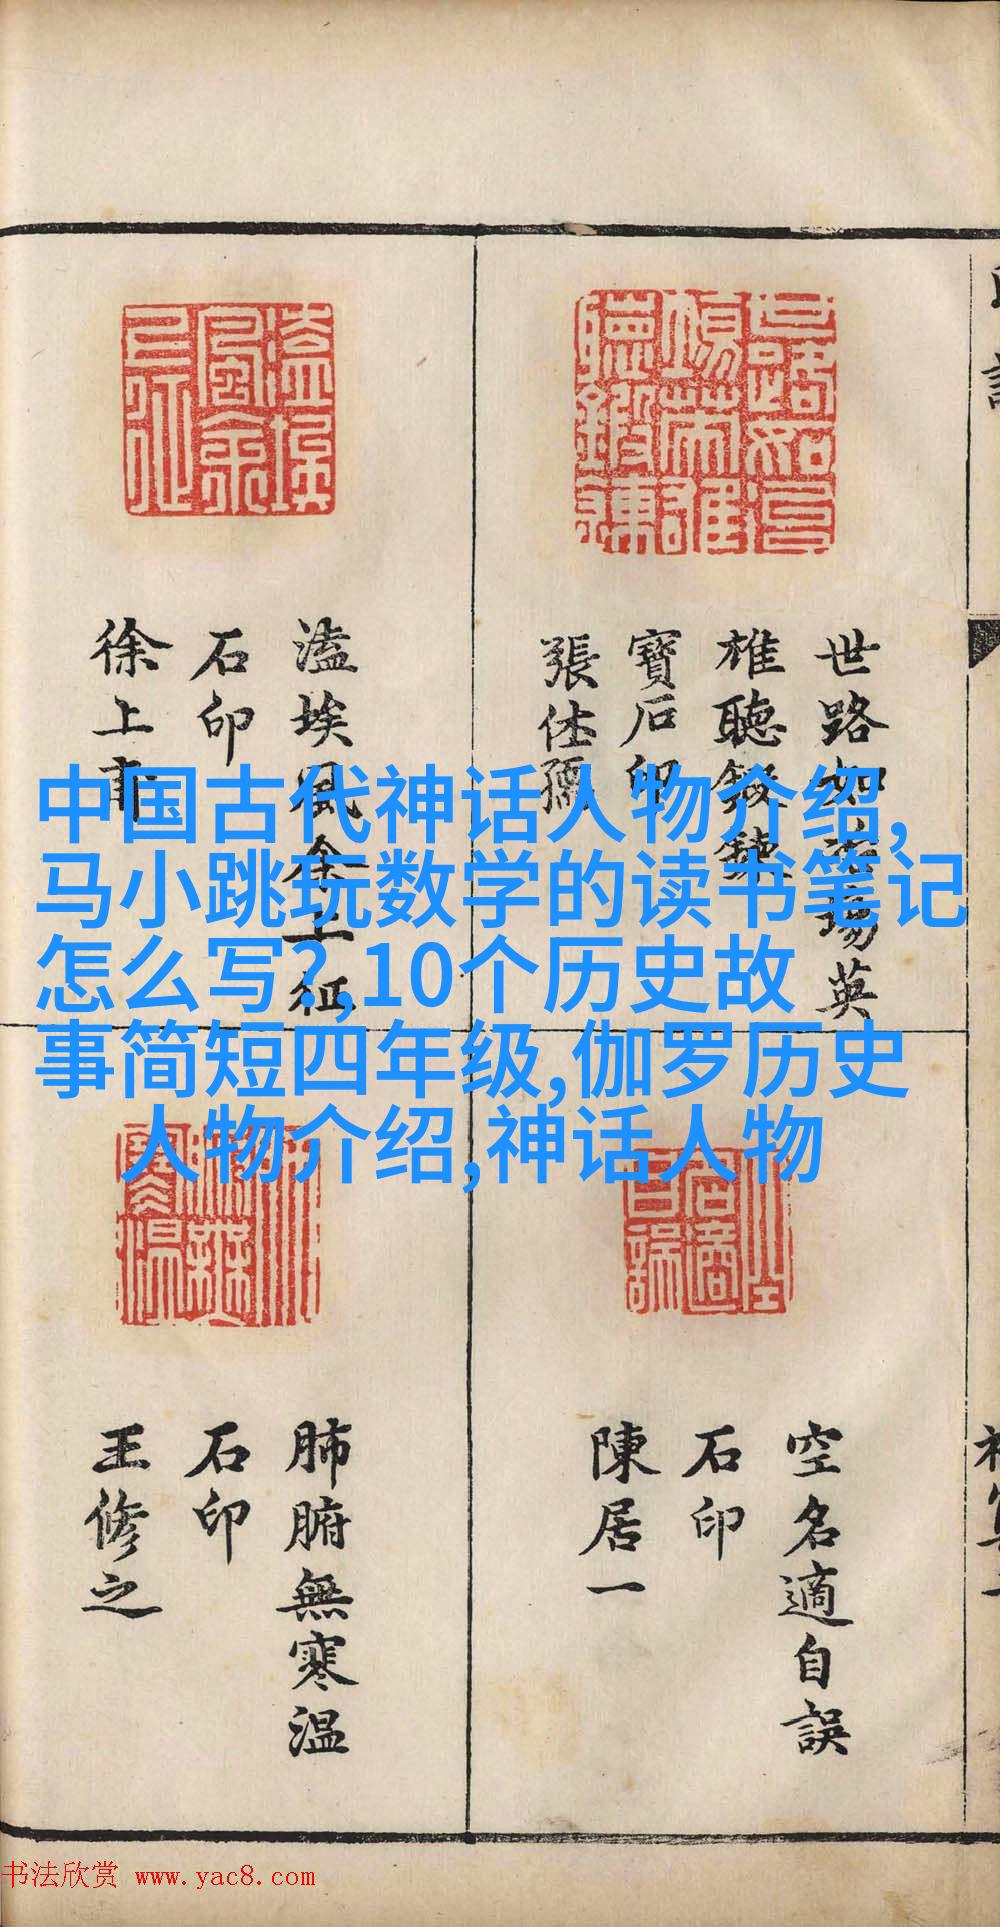 世路如場英
雄聽鍛鍊
寶石印
張仕孺
溘埃風余上征
石印
徐上
中国古代神话人物介绍,
马小跳玩数学的读书笔记
怎么写?,10个历史故
事简短四年级,伽罗历史
人物介绍,神话人物
空名適自誤
石印
陳居一
肺腑無寒温
石印
王修之
书法欣赏 www.yac8.com